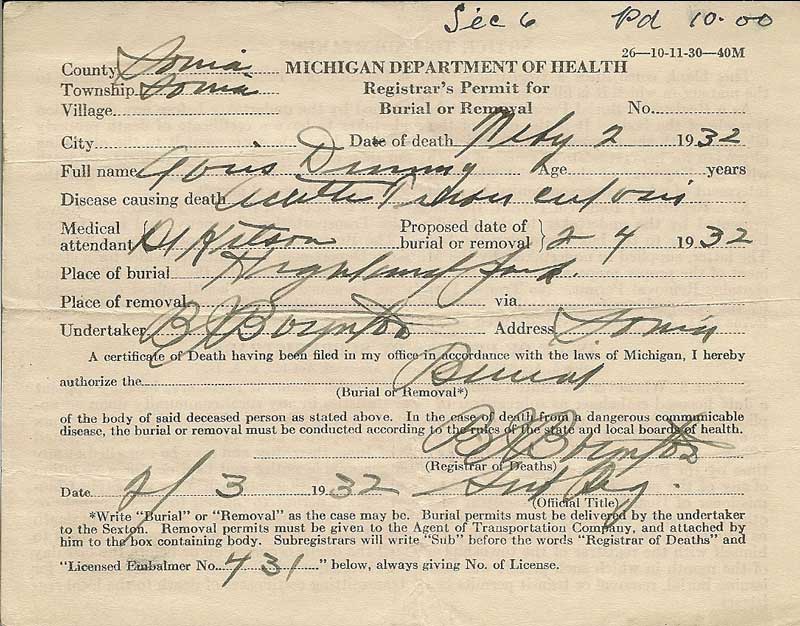 Sec 6 Pd 10.00
26—10-11-30—40M
County Ionia MICHIGAN DEPARTMENT OF HEALTH
Township Ionia Registrar's Permit for
Village Burial or Removal No.
City Date of death Feby 2 1932
Full name Age years
Disease causing death Acute
Medical attendant Proposed date of burial or removal } 2 4 1932
Place of burial Highland
Place of removal via
Undertaker B Boynton Address Ionia
A certificate of Death having been filed in my office in accordance with the laws of Michigan, I hereby
authorize the Burial
(Burial or Removal*)
of the body of said deceased person as stated above. In the case of death from a dangerous communicable
disease, the burial or removal must be conducted according to the rules of the state and local boards of health.
B Boynton
(Registrar of Deaths)
Date 2/3 1932 Sub Reg.
(Official Title)
*Write "Burial" or "Removal" as the case may be. Burial permits must be delivered by the undertaker
to the Sexton. Removal permits must be given to the Agent of Transportation Company, and attached by
him to the box containing body. Subregistrars will write "Sub" before the words "Registrar of Deaths" and
"Licensed Embalmer No. 431" below, always giving No. of License.